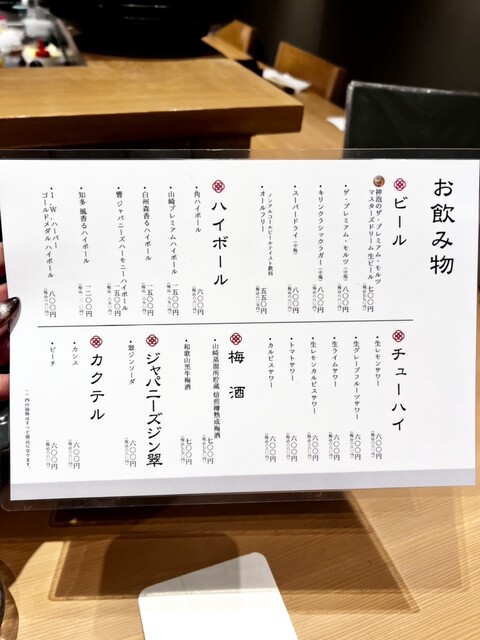 お飲み物
ビール
神泡のザ・プレミアム・モルツ
マスターズドリーム 生ビール 七〇〇円
・ザ・プレミアム・モルツ（小瓶） 八〇〇円
・キリンクラシックラガー（中瓶） 八〇〇円
・スーパードライ（中瓶） 八〇〇円
ノンアルコールビールテイスト飲料
・オールフリー 五五〇円
ハイボール
・角ハイボール 六〇〇円
・山崎プレミアムハイボール 一五〇〇円
・白州森香るハイボール 一五〇〇円
・響 ジャパニーズハーモニーハイボール 一五〇〇円
・知多 風香るハイボール 一二〇〇円
・I.W.ハーパー
ゴールドメダル ハイボール 八〇〇円
チューハイ
・生レモンサワー 六〇〇円
・生グレープフルーツサワー 六〇〇円
・生ライムサワー 六〇〇円
・生レモンカルピスサワー 六〇〇円
・トマトサワー 六〇〇円
・カルピスサワー 六〇〇円
梅酒
・山崎蒸溜所貯蔵 焙煎樽熟成梅酒 七〇〇円
・和歌山黒牛梅酒 七〇〇円
ジャパニーズジン翠
・翠ジンソーダ 六〇〇円
カクテル
・カシス 六〇〇円
・ピーチ 六〇〇円
（ ）内の価格はすべて税込となります。